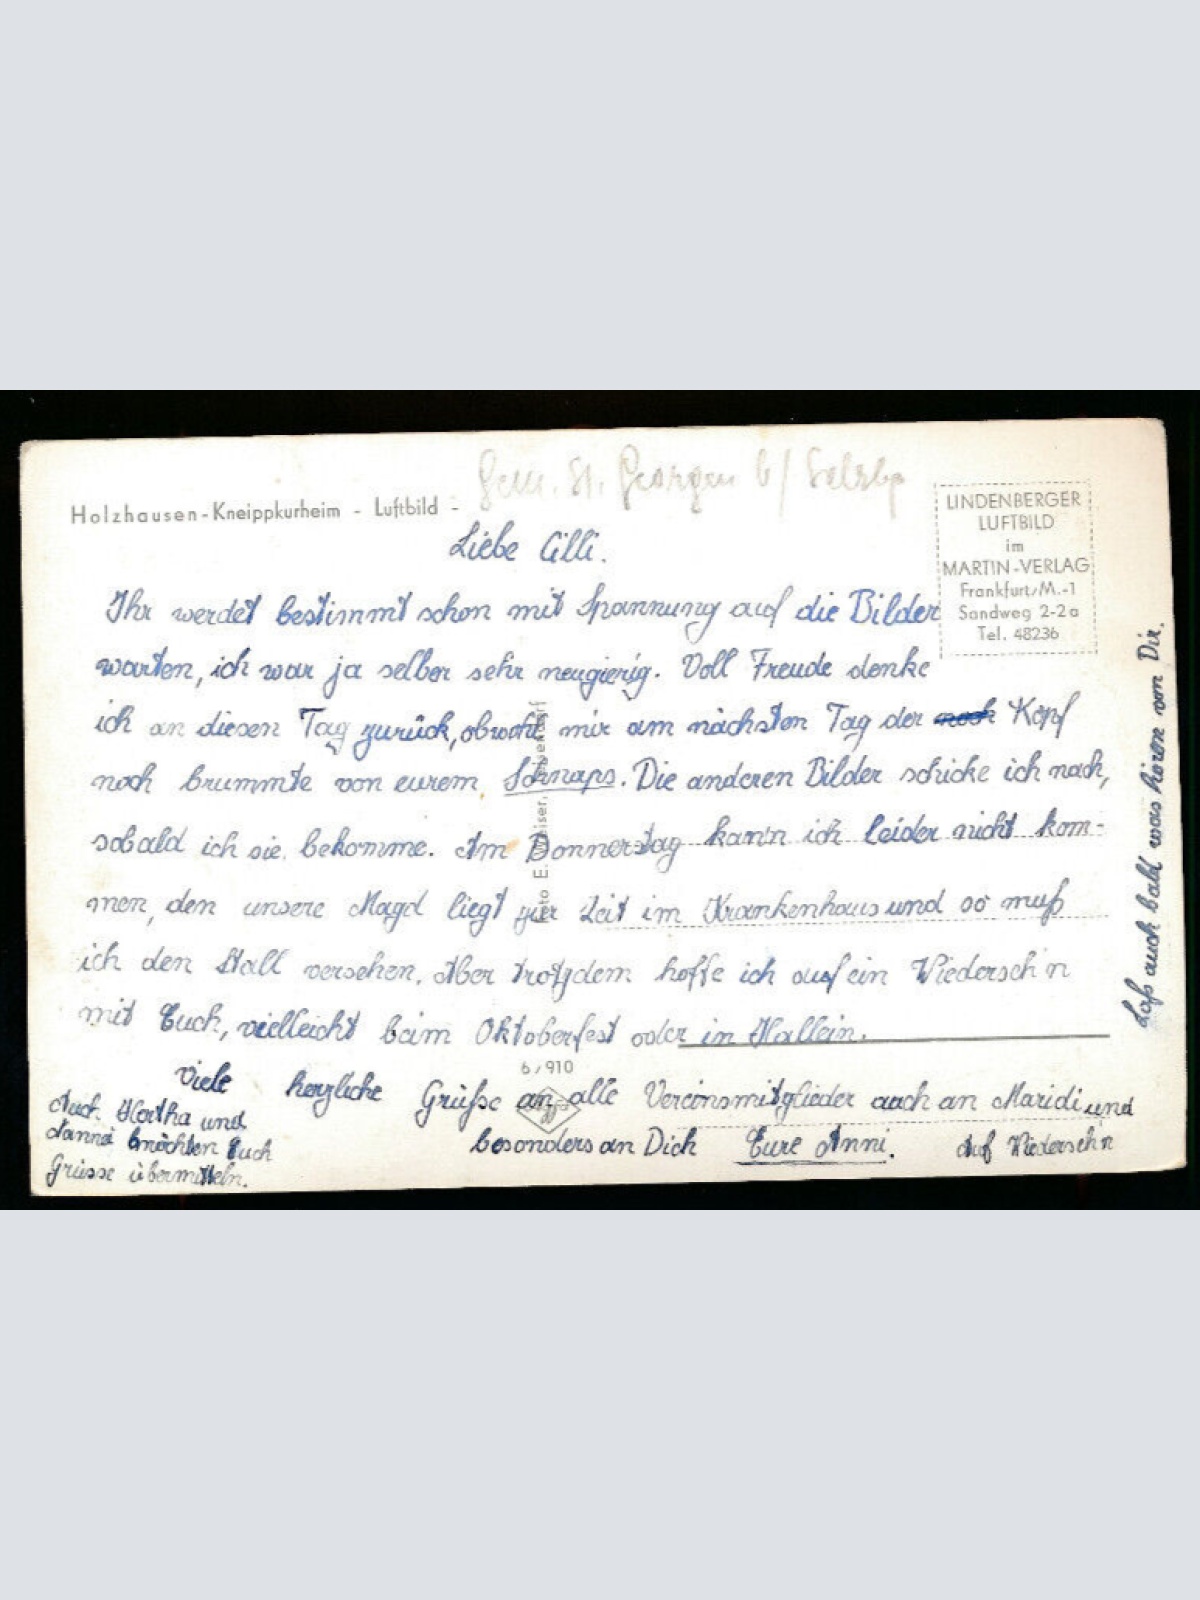 Gem. St. Georgen b/ Salzbg
Holzhausen-Kneippkurheim - Luftbild -
LINDENBERGER
LUFTBILD
im
MARTIN-VERLAG
Frankfurt/M.-1
Sandweg 2-2a
Tel. 48236
Liebe Cilli.
Ihr werdet bestimmt schon mit Spannung auf die Bilder
warten, ich war ja selber sehr neugierig. Voll Freude denke
ich an diesen Tag zurück, obwohl mir am nächsten Tag der noch Kopf
noch brummte von eurem Schnaps. Die anderen Bilder schicke ich nach,
sobald ich sie bekomme. Am Donnerstag kann ich leider nicht kom-
men, den unsere Magd liegt zur Zeit im Krankenhaus und so muß
ich den Stall versehen. Aber trotzdem hoffe ich auf ein Wiederseh'n
mit Euch, vielleicht beim Oktoberfest oder in Hallein.
Viele herzliche Grüße an alle Vereinsmitglieder auch an Maridi und
besonders an Dich Eure Anni. Auf Wiederseh'n
Auch Hertha und
Nanni möchten Euch
Grüsse übermitteln.
Laß auch bald was hören von Dir.
Foto E.
6/910